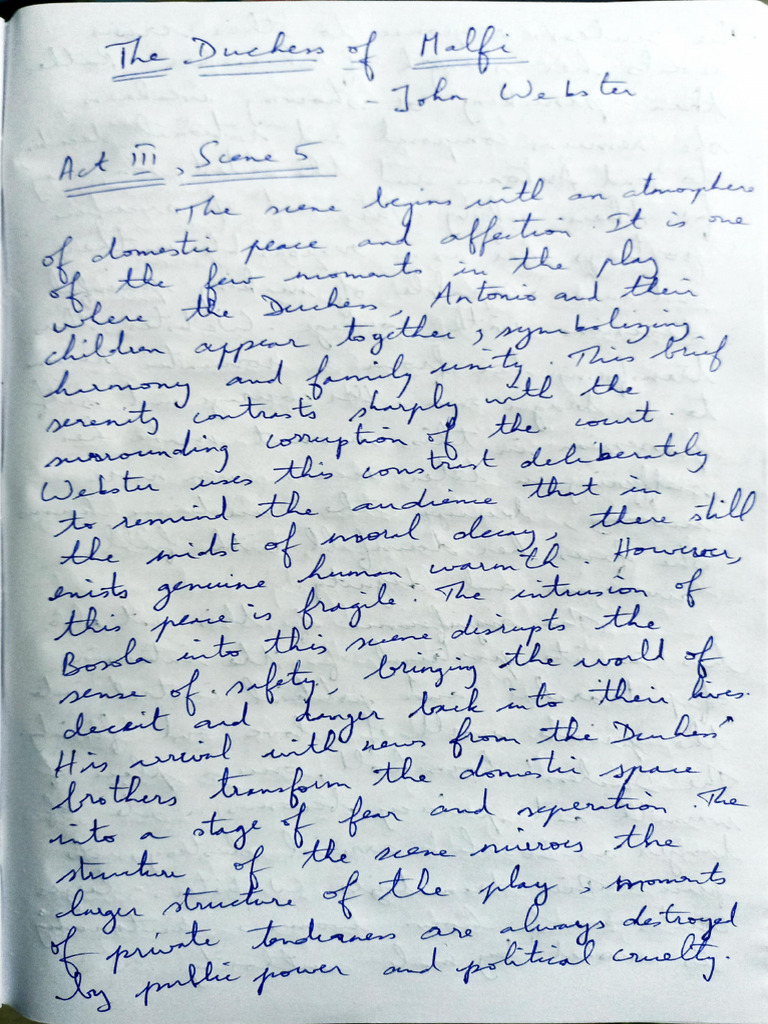 The Duchess of Malfi
- John Webster
Act III, Scene 5
The scene begins with an atmosphere
of domestic peace and affection. It is one
of the few moments in the play
where the Duchess, Antonio and their
children appear together, symbolizing
harmony and family unity. This brief
serenity contrasts sharply with the
surrounding corruption of the court.
Webster uses this constrast deliberately
to remind the audience that in
the midst of moral decay, there still
exists genuine human warmth. However,
this peace is fragile. The intrusion of
Bosola into this scene disrupts the
sense of safety, bringing the world of
deceit and danger back into their lives.
His arrival with news from the Duchess'
brothers transform the domestic space
into a stage of fear and seperation. The
structure of the scene mirrors the
larger structure of the play, moments
of private tenderness are always destroyed
by public power and political cruelty.